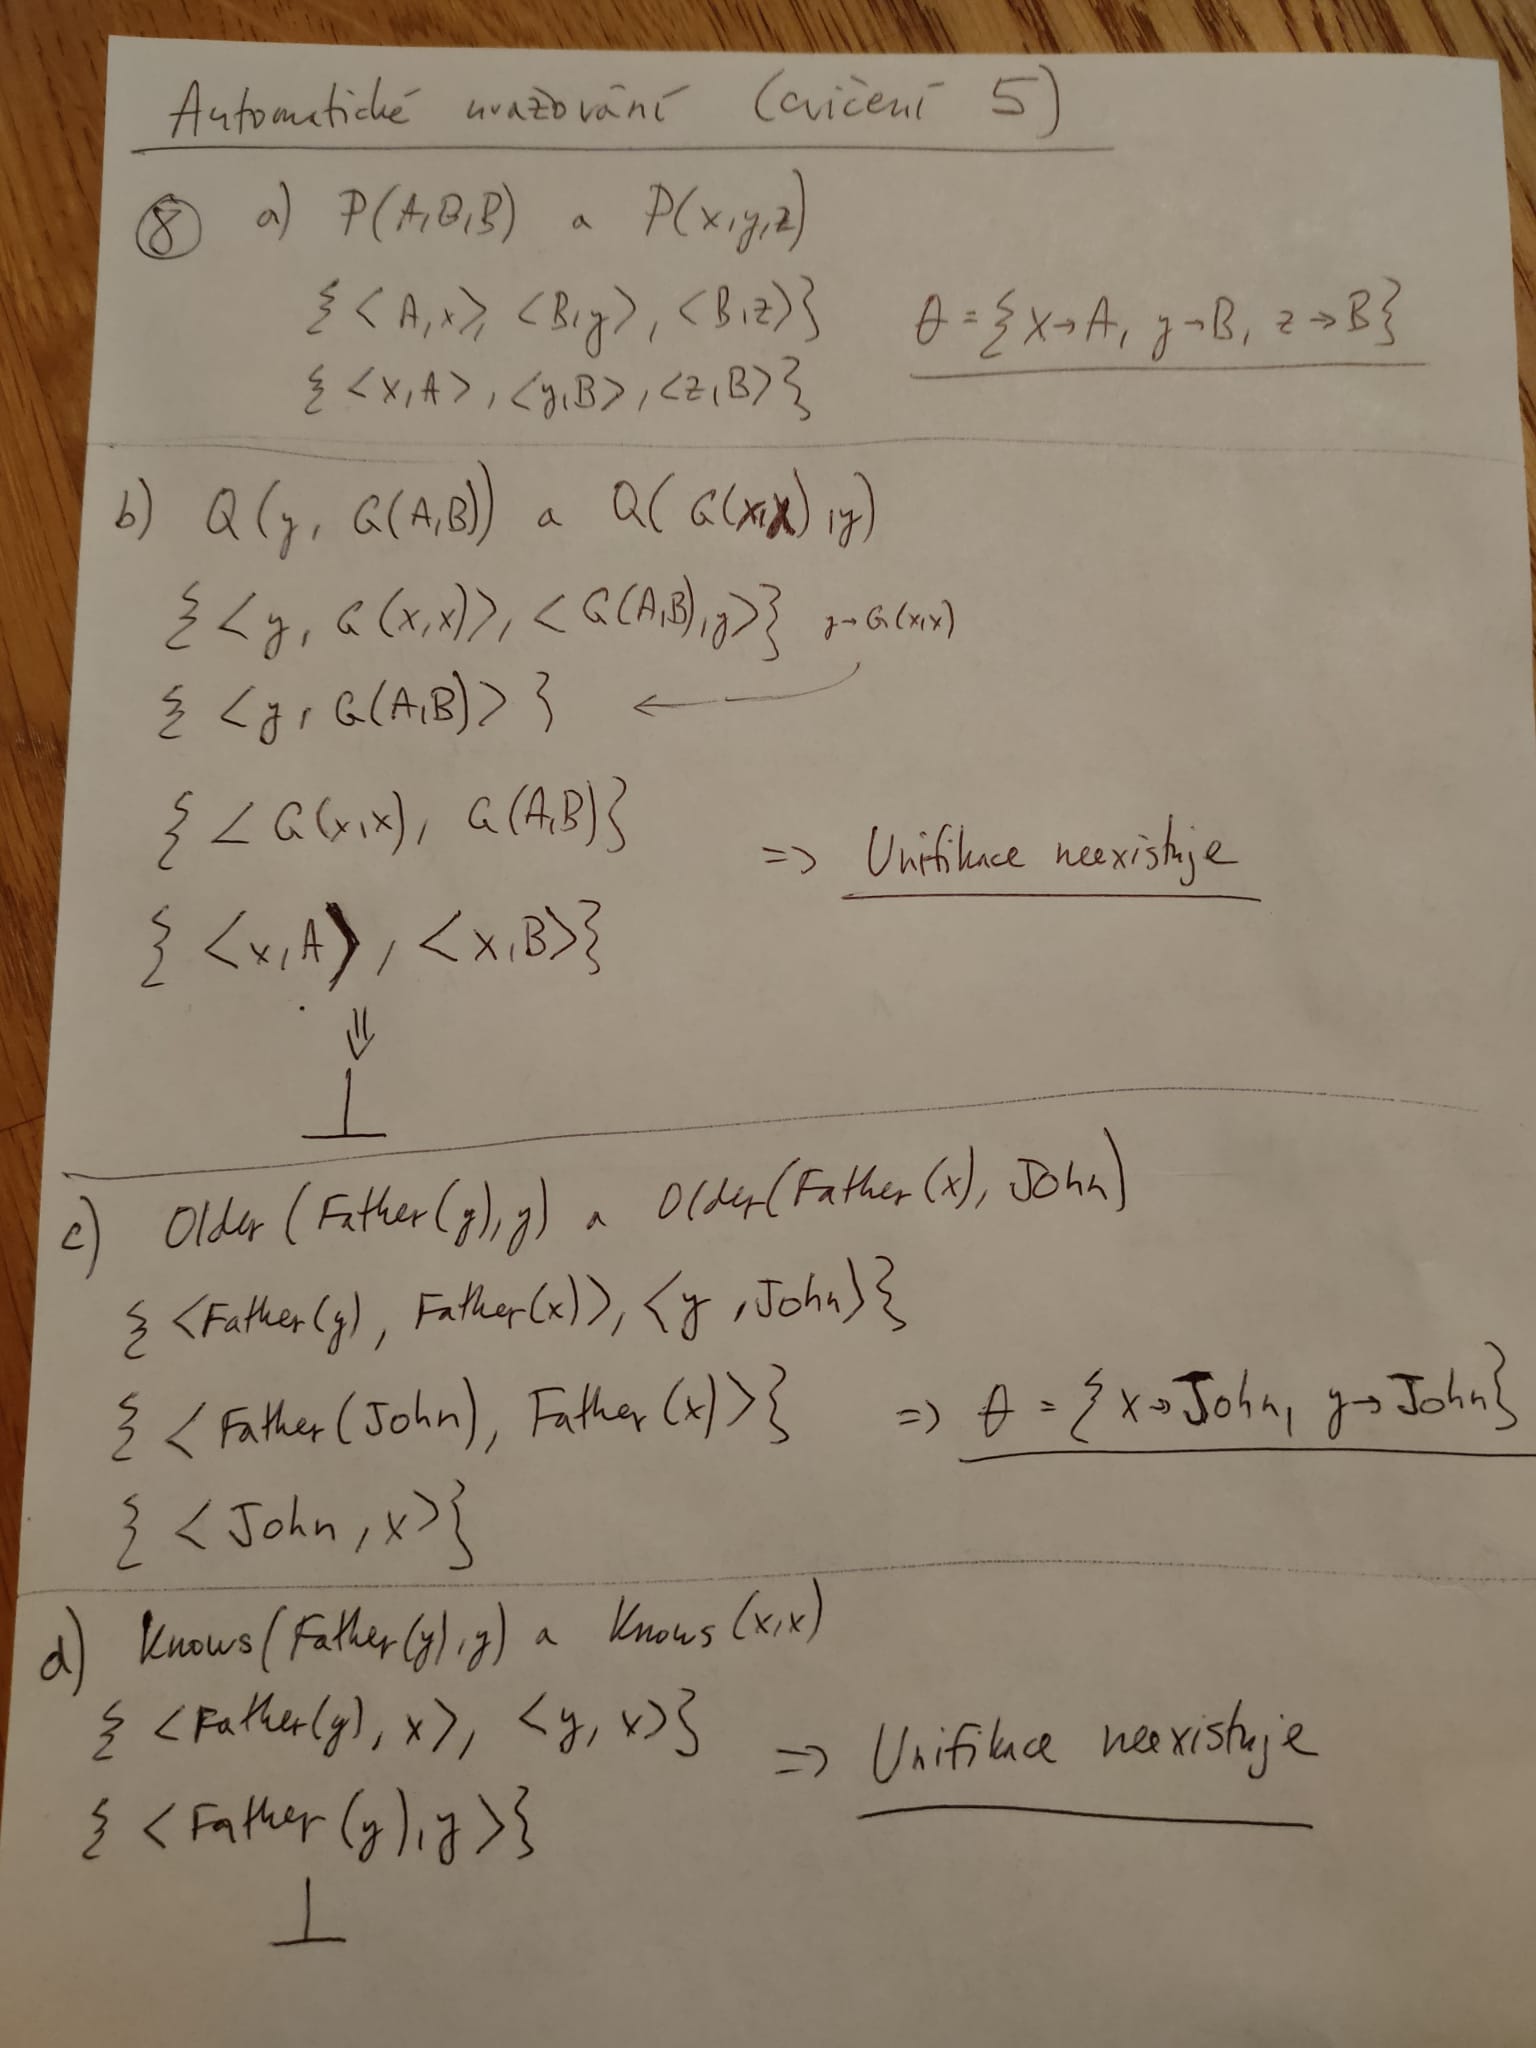 Automatické uvažování (cvičení 5)
⑧ a) P(A,B,B) a P(x,y,z)
{<A,x>, <B,y>, <B,z>}
θ = {x→A, y→B, z→B}
{<x,A>, <y,B>, <z,B>}
b) Q(y, G(A,B)) a Q(G(x,x),y)
{<y, G(x,x)>, <G(A,B),y>} y→G(x,x)
{<y, G(A,B)>} ←
{<G(x,x), G(A,B)}
=> Unifikace neexistuje
{<x,A>, <x,B>}
⇓
⊥
c) Older(Father(y),y) a Older(Father(x), John)
{<Father(y), Father(x)>, <y, John>}
{<Father(John), Father(x)>} => θ = {x→John, y→John}
{<John, x>}
d) Knows(Father(y),y) a Knows(x,x)
{<Father(y), x>, <y, x>}
=> Unifikace neexistuje
{<Father(y), y>}
⊥